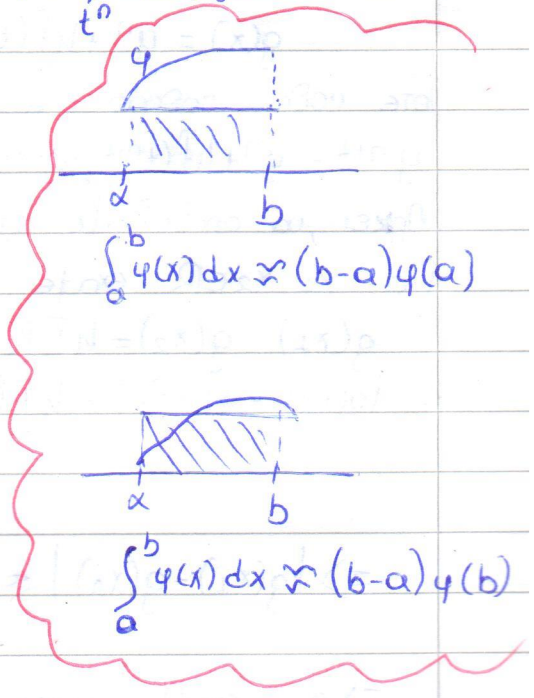 tⁿ
φ
α b
∫ₐᵇ φ(x) dx ≈ (b-a)φ(a)
α b
∫ₐᵇ φ(x) dx ≈ (b-a)φ(b)